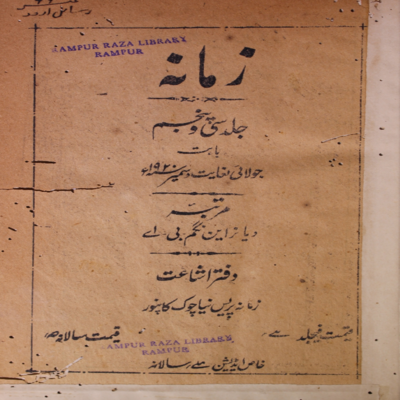 رسائل اردو
RAMPUR RAZA LIBRARY
RAMPUR
زمانہ
جلد سی و پنجم
بابت
جولائی لغایت دسمبر ۱۹۲۰ء
مرتبہ
دیانراین نگم بی۔ اے
دفتر اشاعت
زمانہ پریس نیا چوک کانپور
قیمت فیجلد قیمت سالانہ
RAMPUR RAZA LIBRARY
RAMPUR
خاص ایڈیشن سالانہ